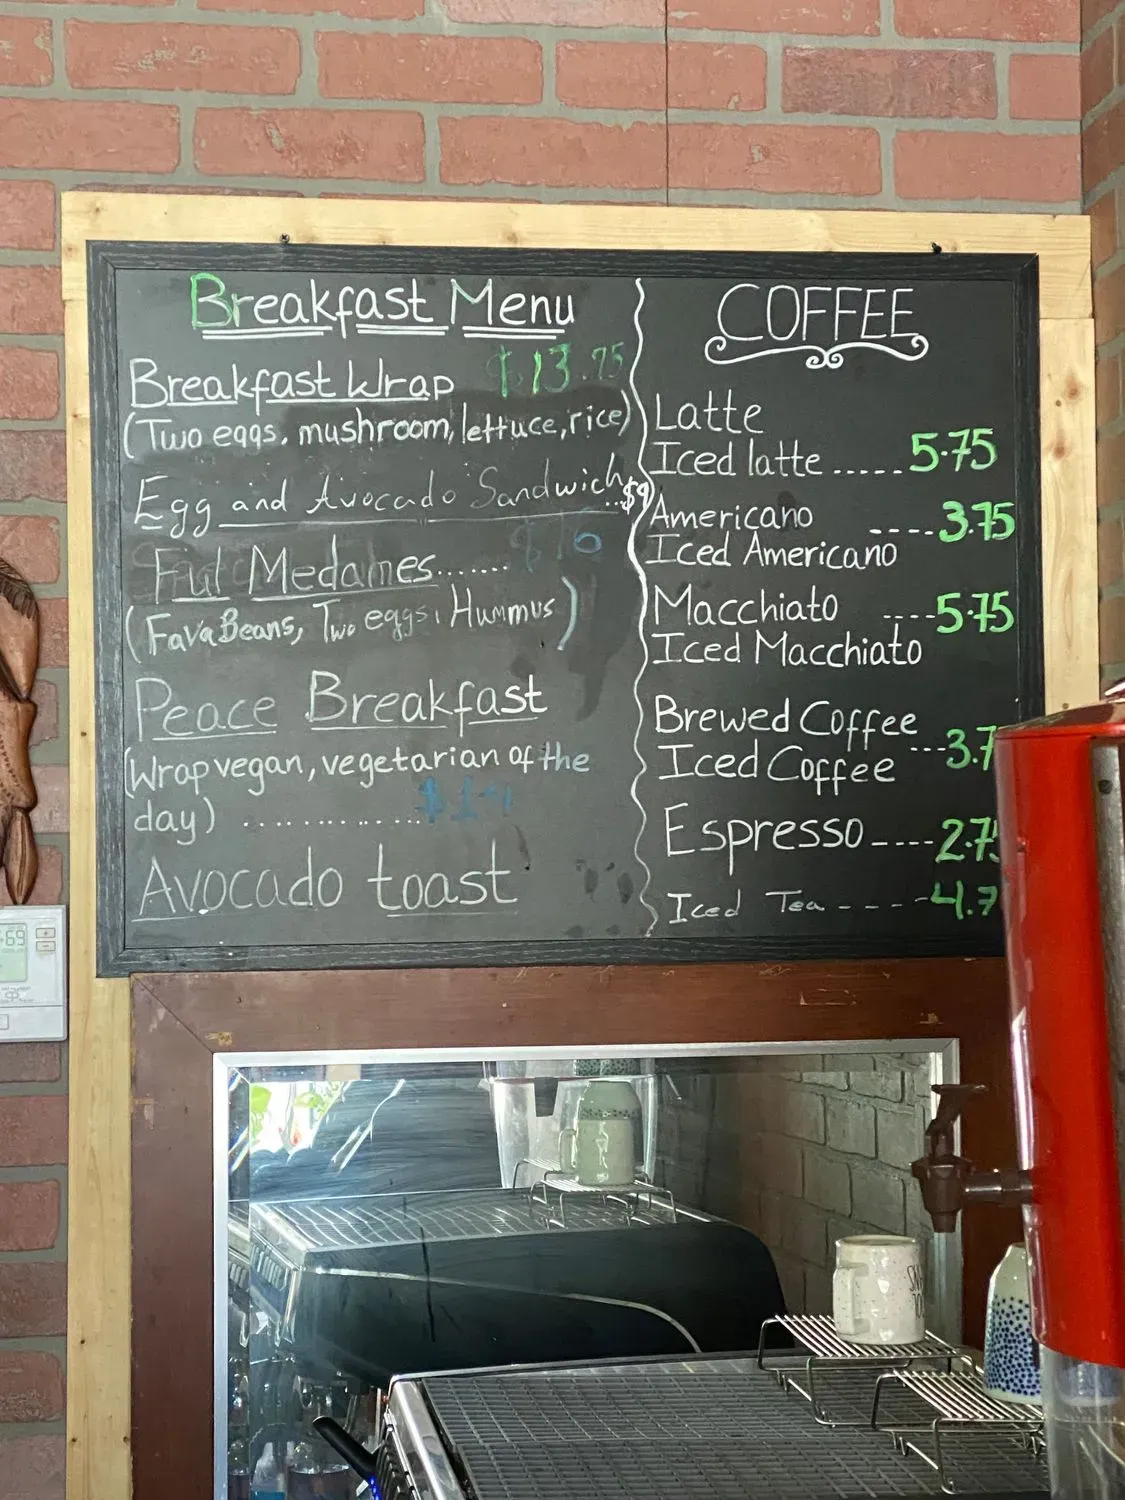 Breakfast Menu
Breakfast Wrap $13.75
(Two eggs, mushroom, lettuce, rice)
Egg and Avocado Sandwich...$9
Ful Medames....... $16
(Fava Beans, Two eggs, Hummus)
Peace Breakfast
(Wrap vegan, vegetarian of the
day) ..............$14
Avocado toast
COFFEE
Latte
Iced latte.....5.75
Americano ----3.75
Iced Americano
Macchiato ----5.75
Iced Macchiato
Brewed Coffee
Iced Coffee ---3.7
Espresso----2.75
Iced Tea ----4.7
69